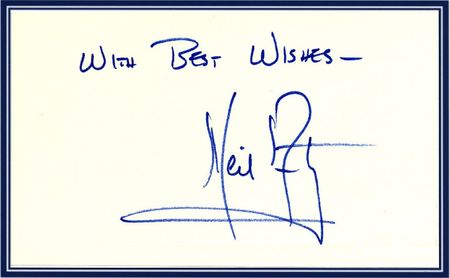 WITH BEST WISHES—
Neil